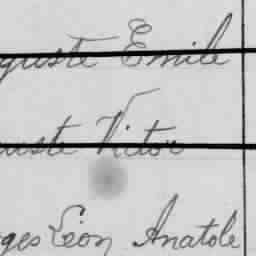 guste Emile
uste Victor
ges Léon Anatole